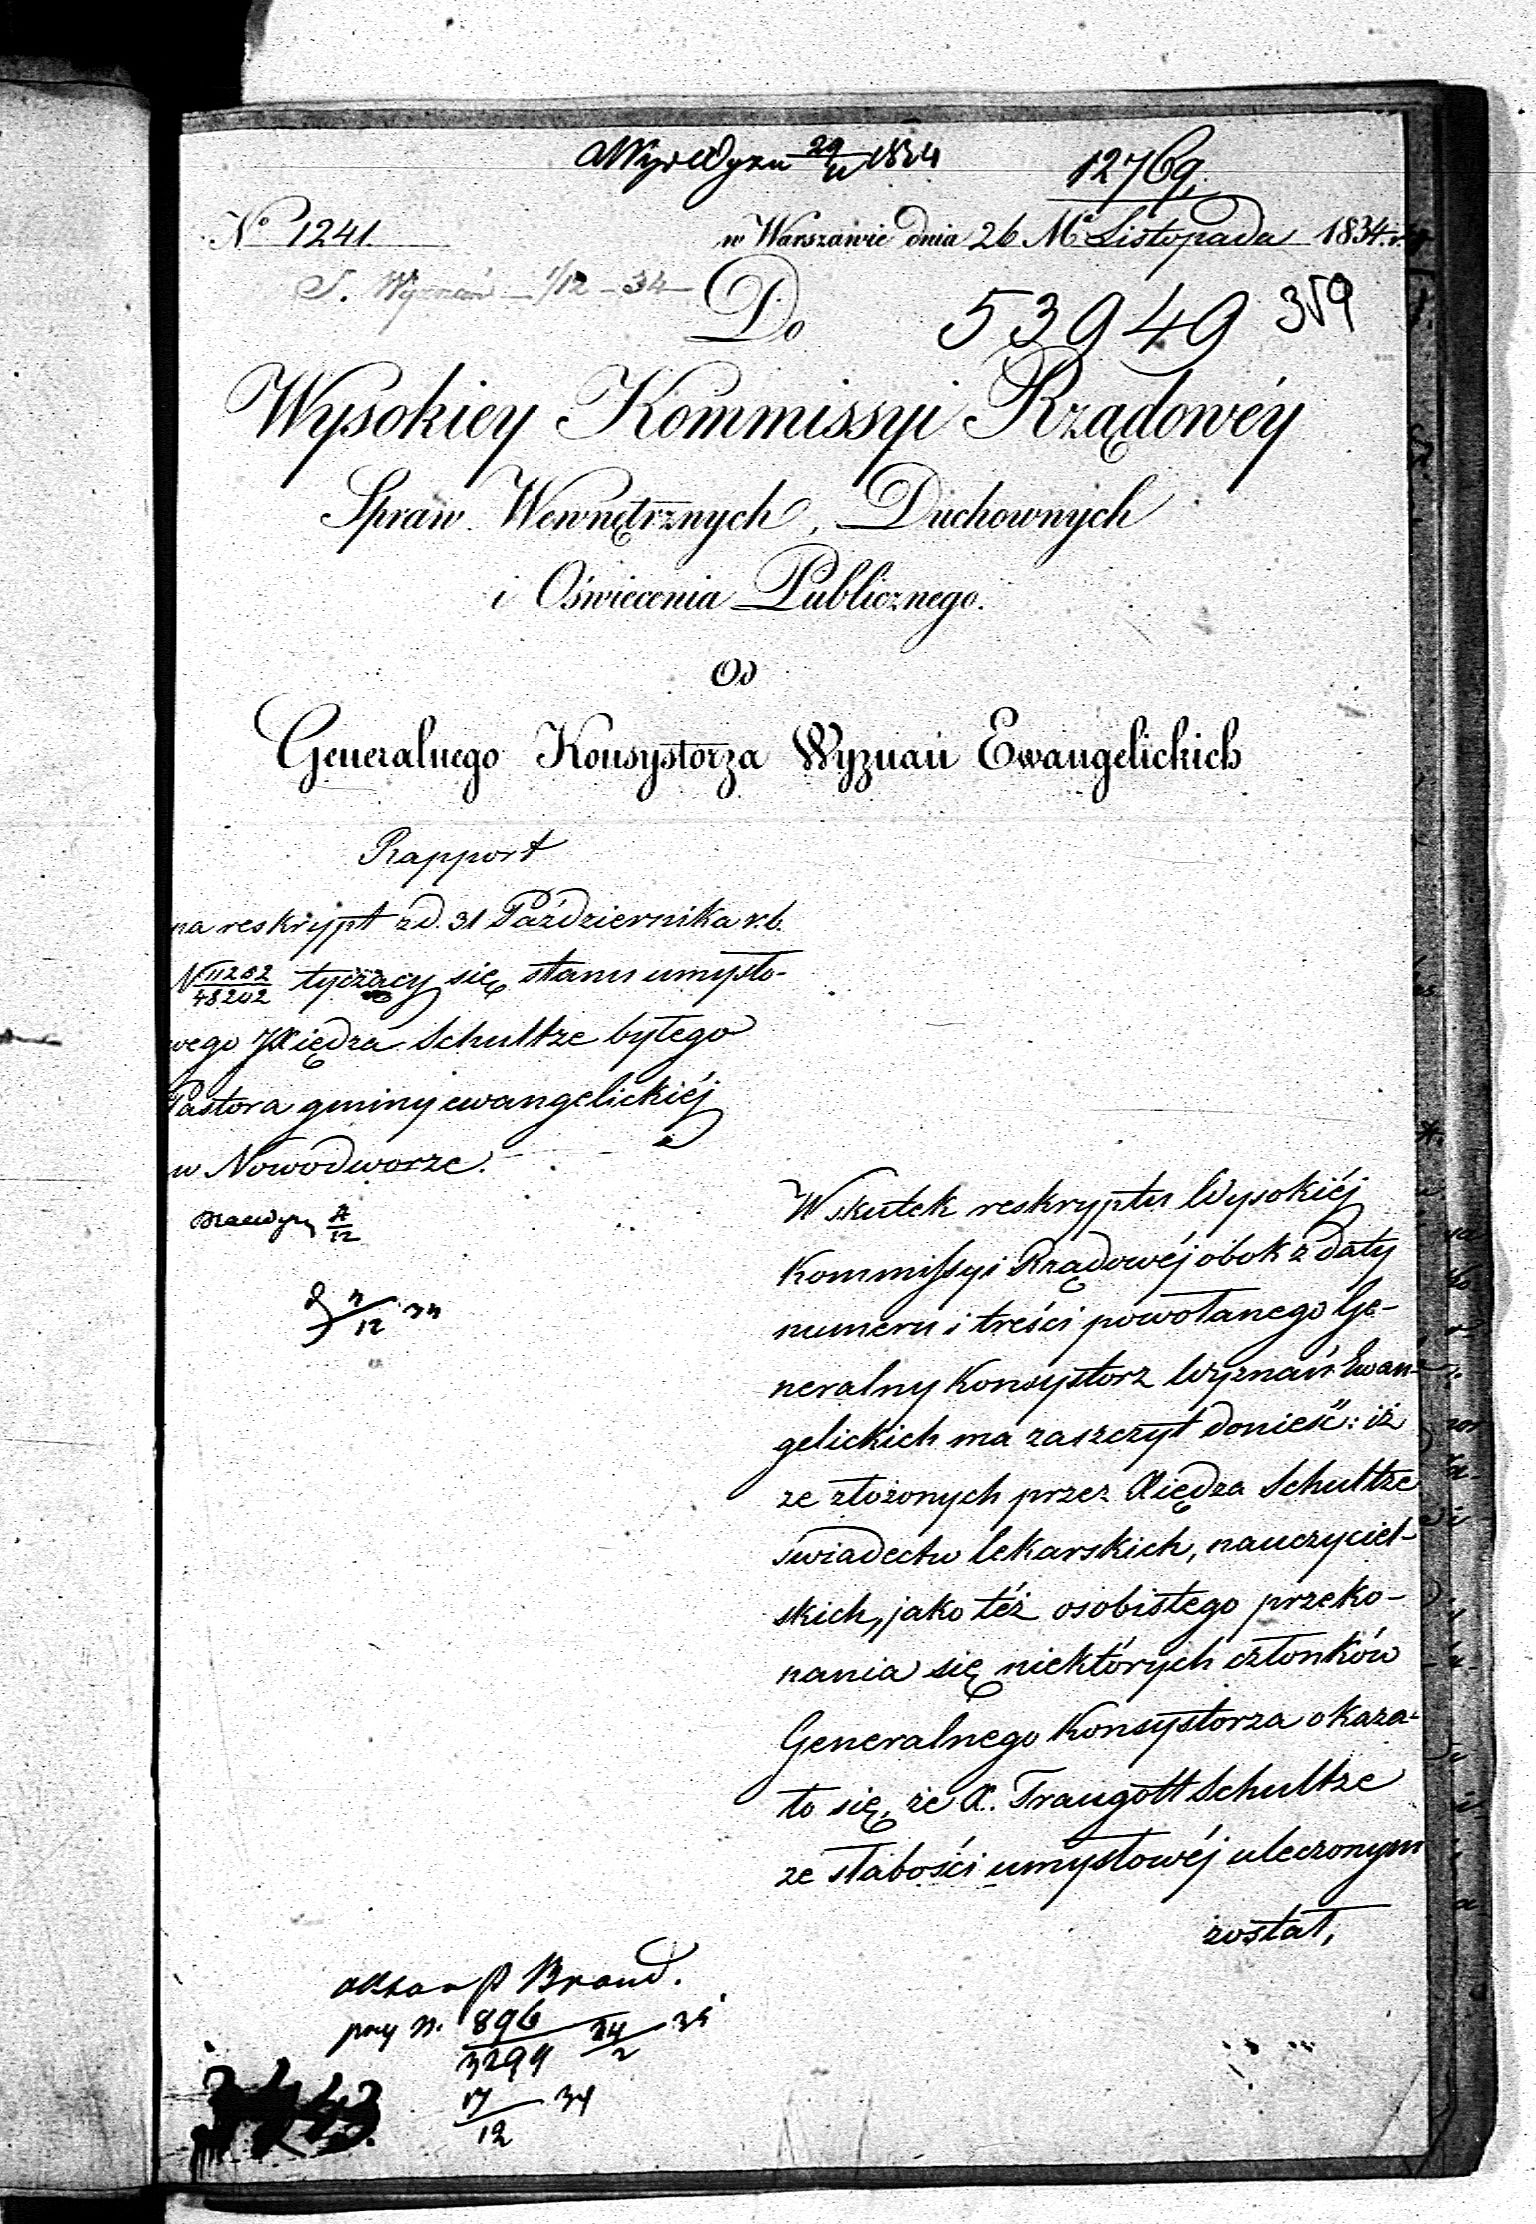 29/11 1834
12769
No 1241.
w Warszawie dnia 26 Mca Listopada 1834 r.
S. Wyznań 1/12 - 34
Do
53949
359
Wysokiey Kommissyi Rządowéy
Spraw Wewnętrznych, Duchownych
i Oświecenia Publicznego.
Od
Generalnego Konsystorza Wyznań Ewangelickich
Rapport
na reskrypt z d. 31 Października r. b.
N 11202/48202 tyczący się stanu umysło-
wego Xiędza Schultze byłego
Pastora gminy ewangelickiéj
w Nowodworze.
12
12 34
W skutek reskryptu Wysokiéj
Kommissyi Rządowéj obok z daty
numeru i treści powołanego Ge-
neralny Konsystorz Wyznań Ewan-
gelickich ma zaszczyt donieść: iż
ze złożonych przez Xiędza Schultze
świadectw lekarskich, nauczyciel-
skich, jako też osobistego przeko-
nania się niektórych członków
Generalnego Konsystorza okaza-
ło się, że X. Traugott Schultze
ze słabości umysłowéj uleczonym
został,
Brand.
przy N. 896/3294 24/2 35
17/12 34
3443